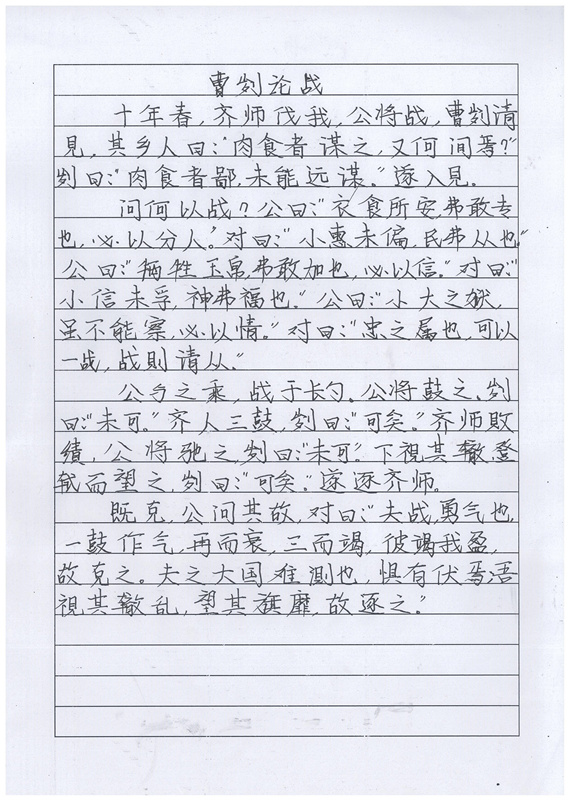 曹刿论战
十年春，齐师伐我，公将战，曹刿清
見，其乡人曰：“肉食者谋之，又何间焉？”
刿曰：“肉食者鄙，未能远谋。”遂入見。
问何以战？公曰：“衣食所安，弗敢专
也，必以分人。”对曰：“小惠未偏，民弗从也”
公曰：“牺牲玉帛，弗敢加也，必以信。”对曰：“
小信未孚，神弗福也。”公曰：“小大之狱，
虽不能察，必以情。”对曰：“忠之属也，可以
一战，战則请从。”
公与之乘，战于长勺。公将鼓之。刿
曰：“未可。”齐人三鼓，刿曰：“可矣。”齐师敗
績，公将驰之，刿曰：“未可”下視其辙，登
轼而望之，刿曰：“可矣。”遂逐齐师。
既克，公问其故，对曰：“夫战，勇气也，
一鼓作气，再而衰，三而竭，彼竭我盈，
故克之。夫之大国难測也，惧有伏焉，浯
視其辙乱，望其旗靡，故逐之。”